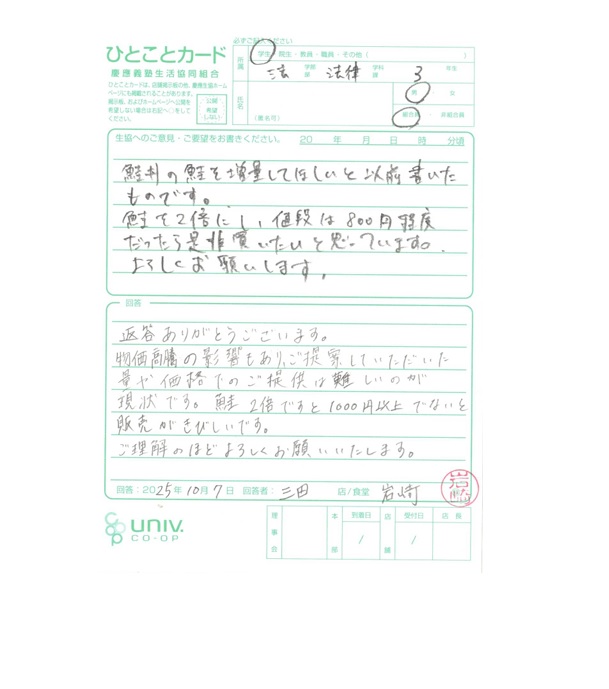 ひとことカード
慶應義塾生活協同組合
ひとことカードは、店舗掲示板の他、慶應生協ホームページにも掲載されることがあります。
掲示板、およびホームページへ公開を希望しない場合は右記へ○をしてください。
公開希望しない
必ずご記入ください
所属
学生・院生・教員・職員・その他（
法 学部 法律 学科 3 年生
部 課
氏名
（匿名可）
男・女
組合員・未組合員
生協へのご意見・ご要望をお書きください。 20 年 月 日 時 分頃
鮭丼の鮭を増量してほしいと以前書いた
ものです。
鮭を2倍にし、値段は800円程度
だったら是非買いたいと思っています。
よろしくお願いします。
回答
返答ありがとうございます。
物価高騰の影響もあり、ご提案していただいた
量や価格でのご提供は難しいのが
現状です。鮭2倍ですと1000円以上でないと
販売がきびしいです。
ご理解のほどよろしくお願いいたします。
回答：2025年10月7日 回答者：三田 店/食堂 岩崎
岩崎
UNIV.
CO-OP
理事会 本部 到着日 / 店舗 受付日 / 店長